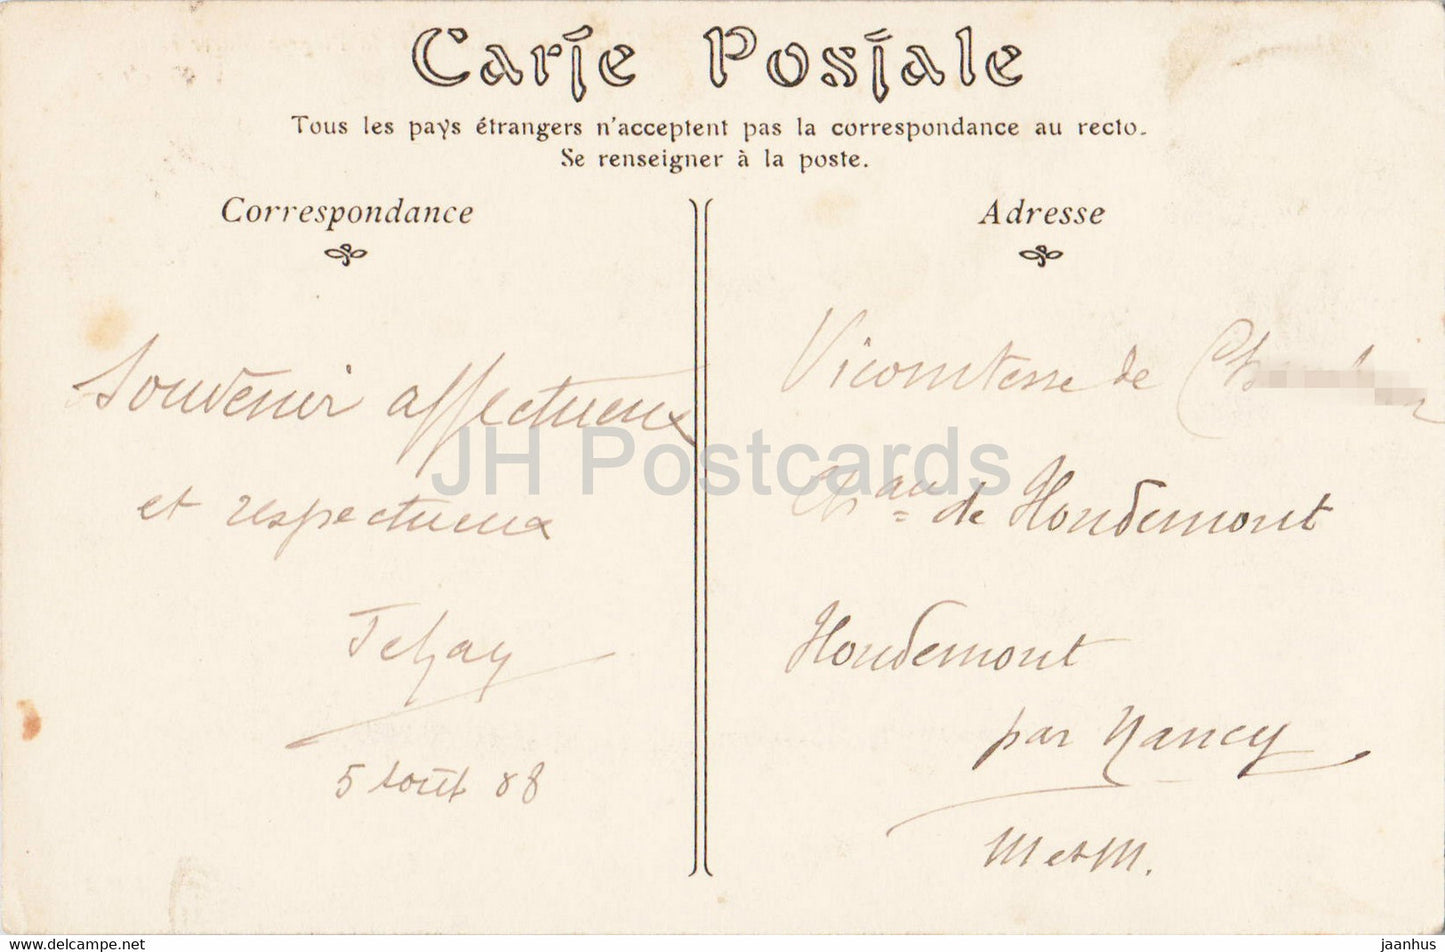 Carte Postale
Tous les pays étrangers n'acceptent pas la correspondance au recto.
Se renseigner à la poste.
Correspondance
Souvenir affectueux
et respectueux
5 Août 08
Adresse
Vicomtesse de
Chau de Houdemont
Houdemont
par Nancy
M et M.
JH Postcards
https://www.jhpostcards.com
jaanhus